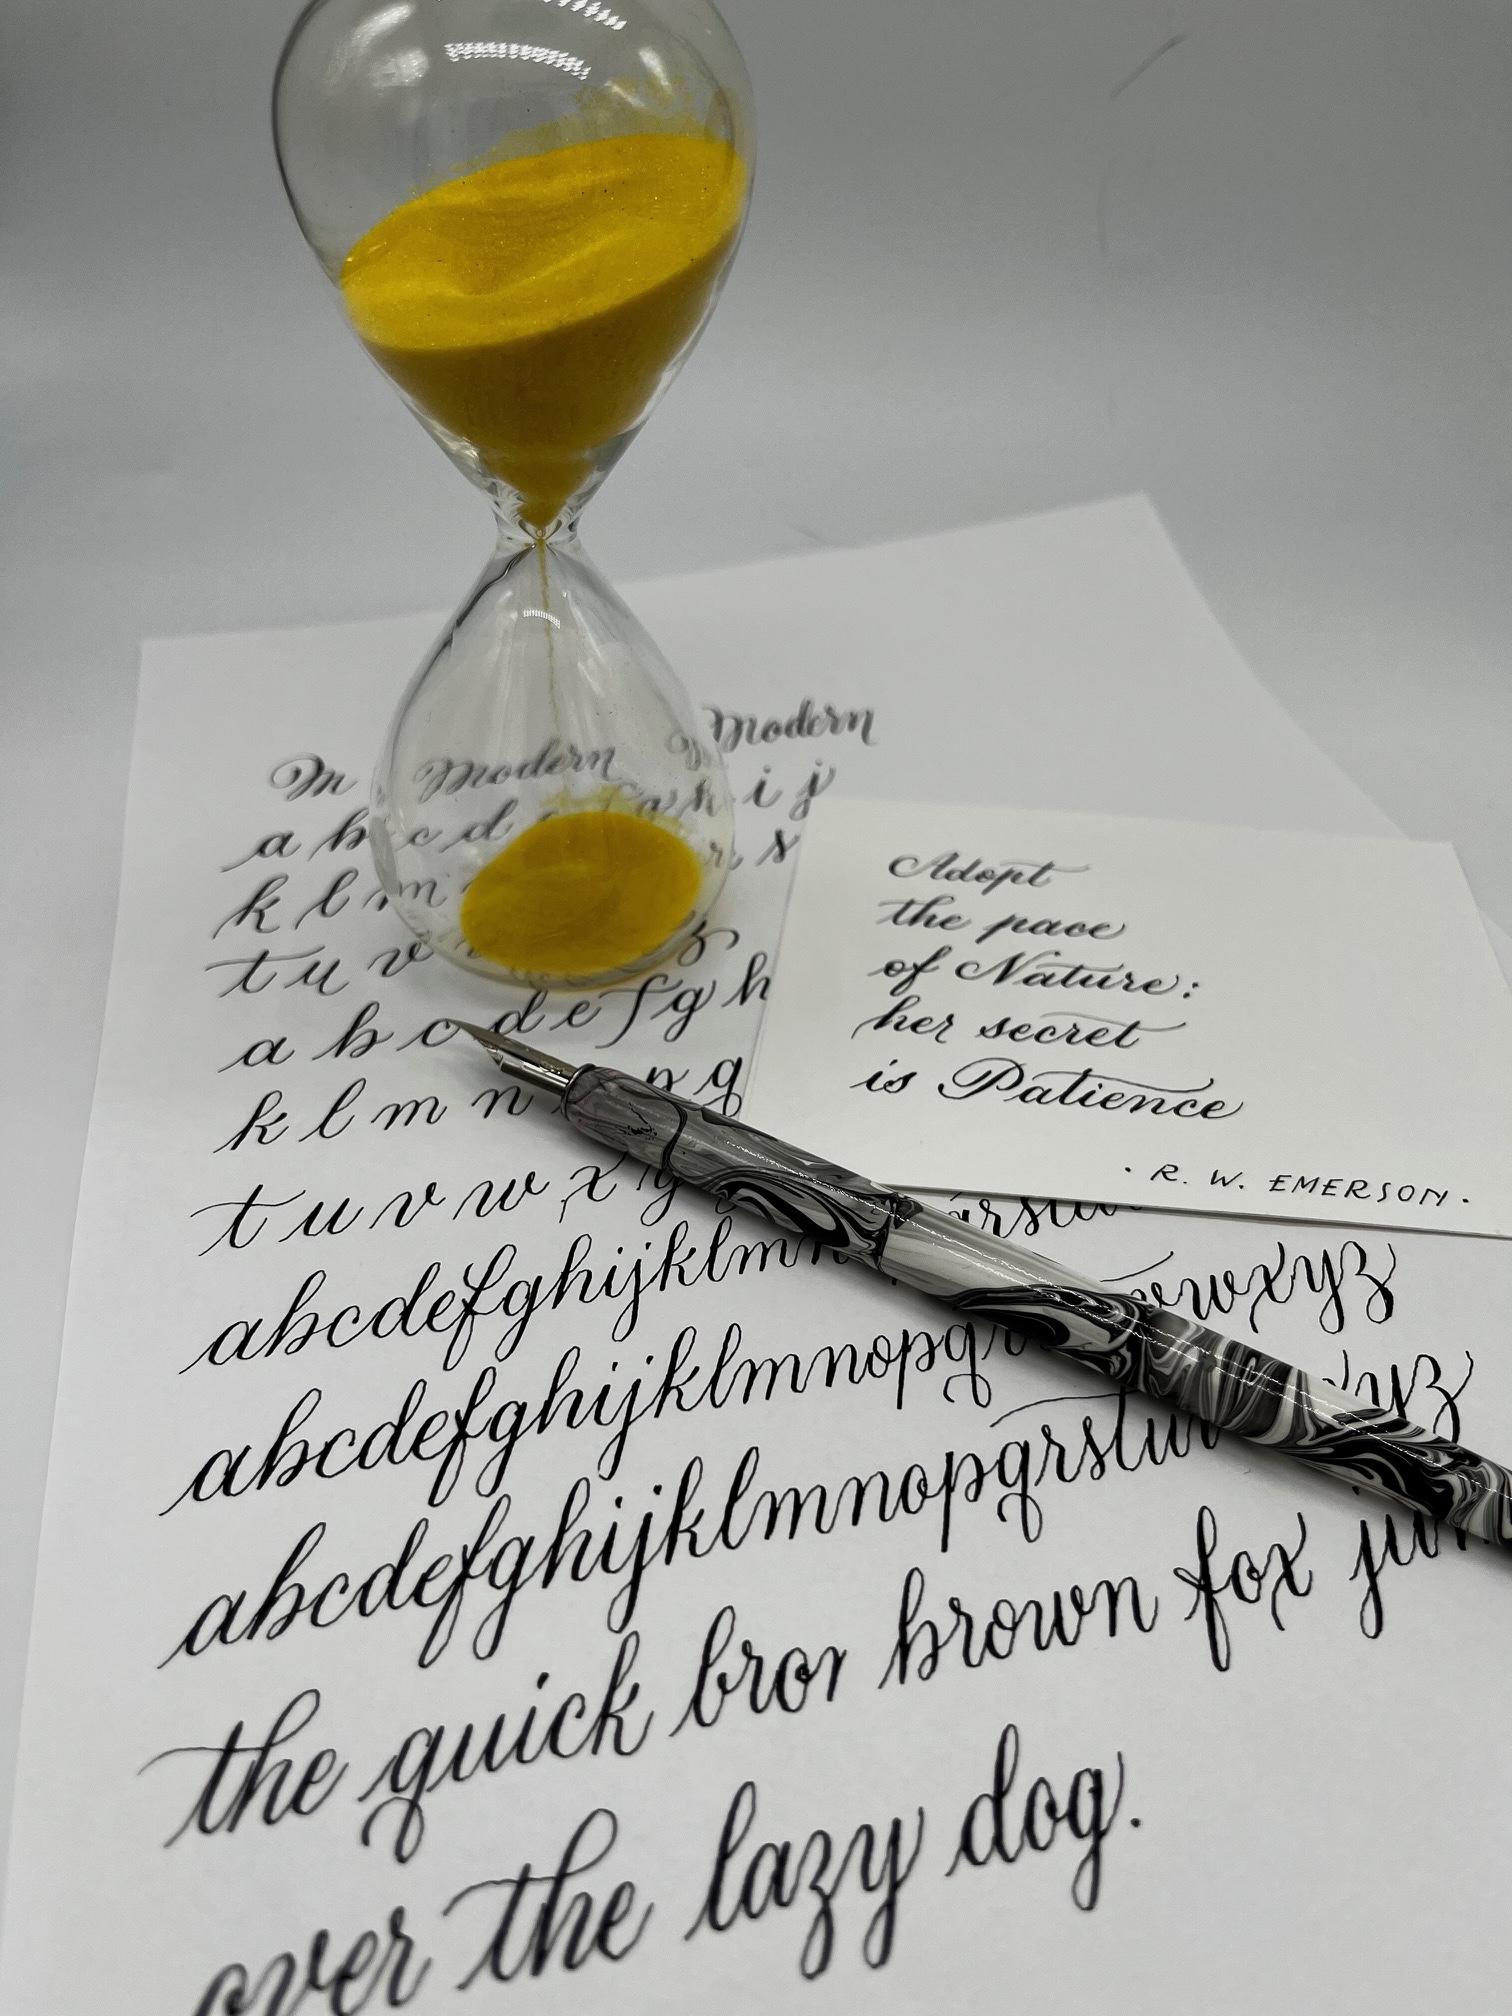 M Modern Modern
a b c d f g h i j
k l m r s
t u v z
a b c d e f g h
k l m n p q
t u v w x y
abcdefghijklmn qrstu
abcdefghijklmnopqr vwxyz
abcdefghijklmnopqrstuv xyz
the quick bror brown fox jum
over the lazy dog.
Adopt
the pace
of Nature:
her secret
is Patience
· R. W. EMERSON ·